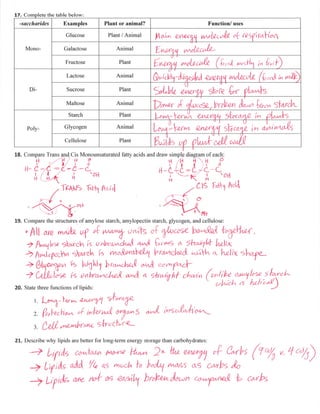 17. Complete the table below:
-saccharides Examples Plant or animal? Function/ uses
Mono- Glucose Plant / Animal Main energy molecule of respiration
Galactose Animal Energy molecule
Fructose Plant Energy molecule (find mostly in fruit)
Di- Lactose Animal Quickly digested energy molecule (find in milk)
Sucrose Plant Soluble energy store for plants
Maltose Animal Dimer of glucose, broken down from starch.
Poly- Starch Plant Long-term energy storage in plants
Glycogen Animal Long-term energy storage in animals
Cellulose Plant Builds up plant cell wall
18. Compare Trans and Cis Monounsaturated fatty acids and draw simple diagram of each:
H H H O H H H O
H-C-C=C-C-C H-C-C=C-C-C
H H H OH H H OH
TRANS Fatty Acid CIS Fatty Acid
O O
OH OH
19. Compare the structures of amylose starch, amylopectin starch, glycogen, and cellulose:
* All are made up of many units of glucose bonded together.
→ Amylose starch is unbranched and forms a straight helix
→ Amylopectin starch is moderately branched with a helix shape
→ Glycogen is highly branched and compact
→ Cellulose is unbranched and a straight chain (unlike amylose starch
which is helical)
20. State three functions of lipids:
1. Long-term energy storage
2. Protection of internal organs and insulation
3. Cell membrane structure
21. Describe why lipids are better for long-term energy storage than carbohydrates:
→ Lipids contain more than 2x the energy of Carbs (9 cal/g v. 4 cal/g)
→ Lipids add 1/6 as much to body mass as carbs do
→ Lipids are not as easily broken down compared to carbs